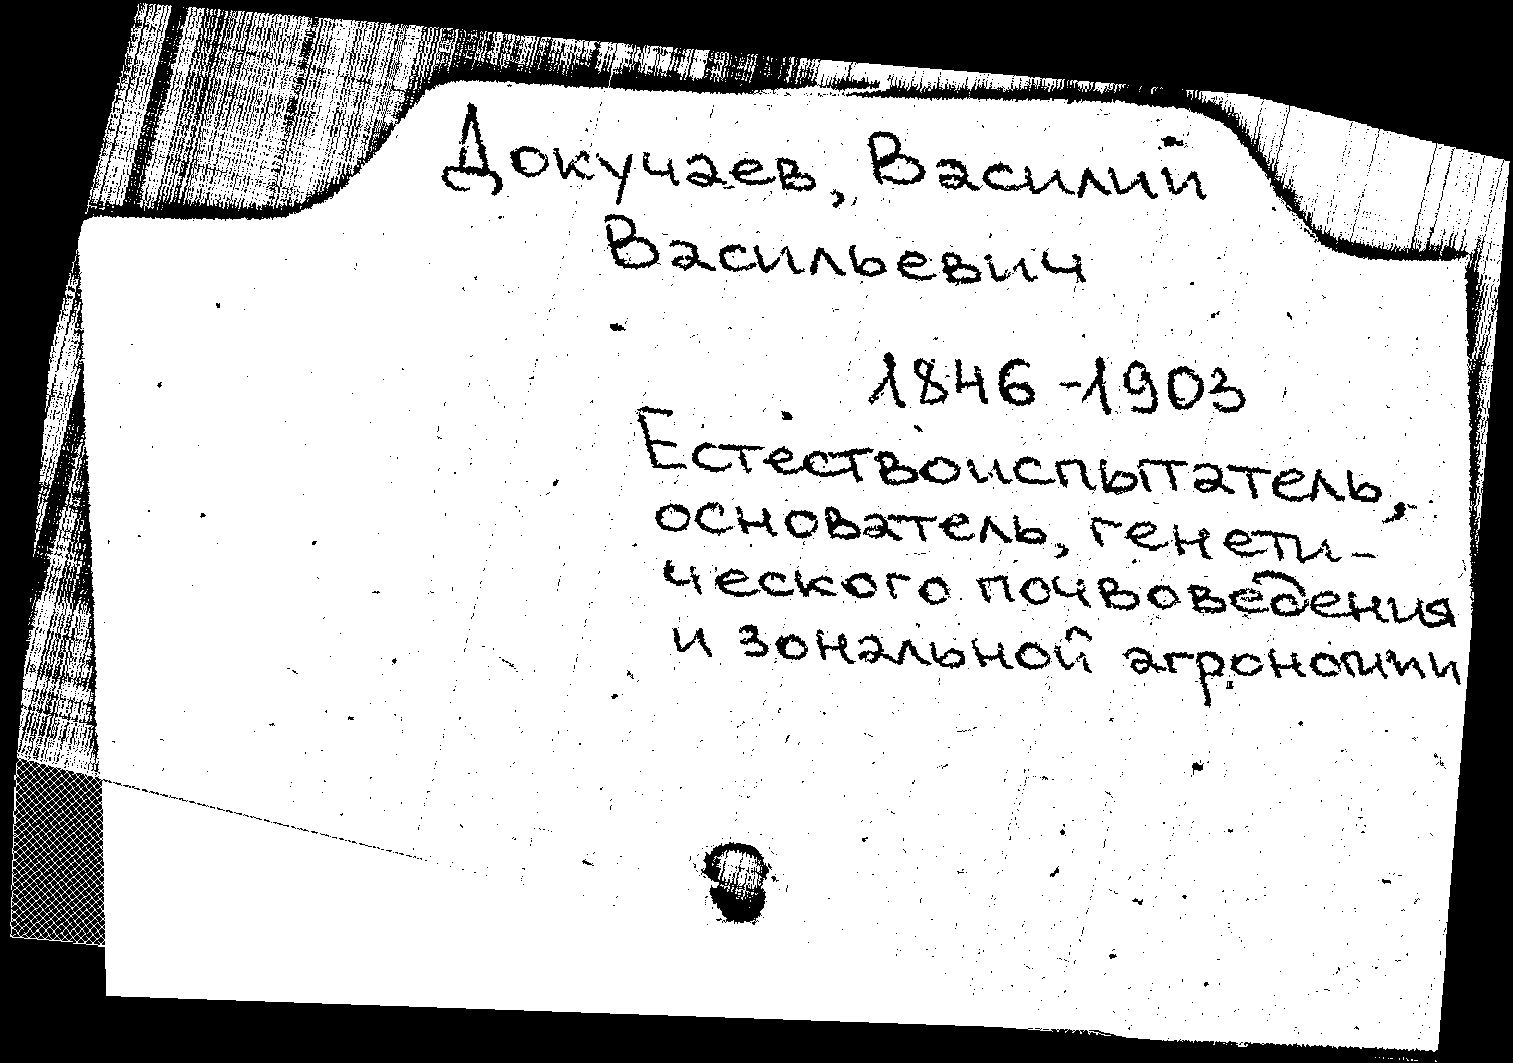 Докучаев, Василий
Васильевич
1846-1903
Естествоиспытатель,
основатель, генети-
ческого почвоведения
и зональной агрономии